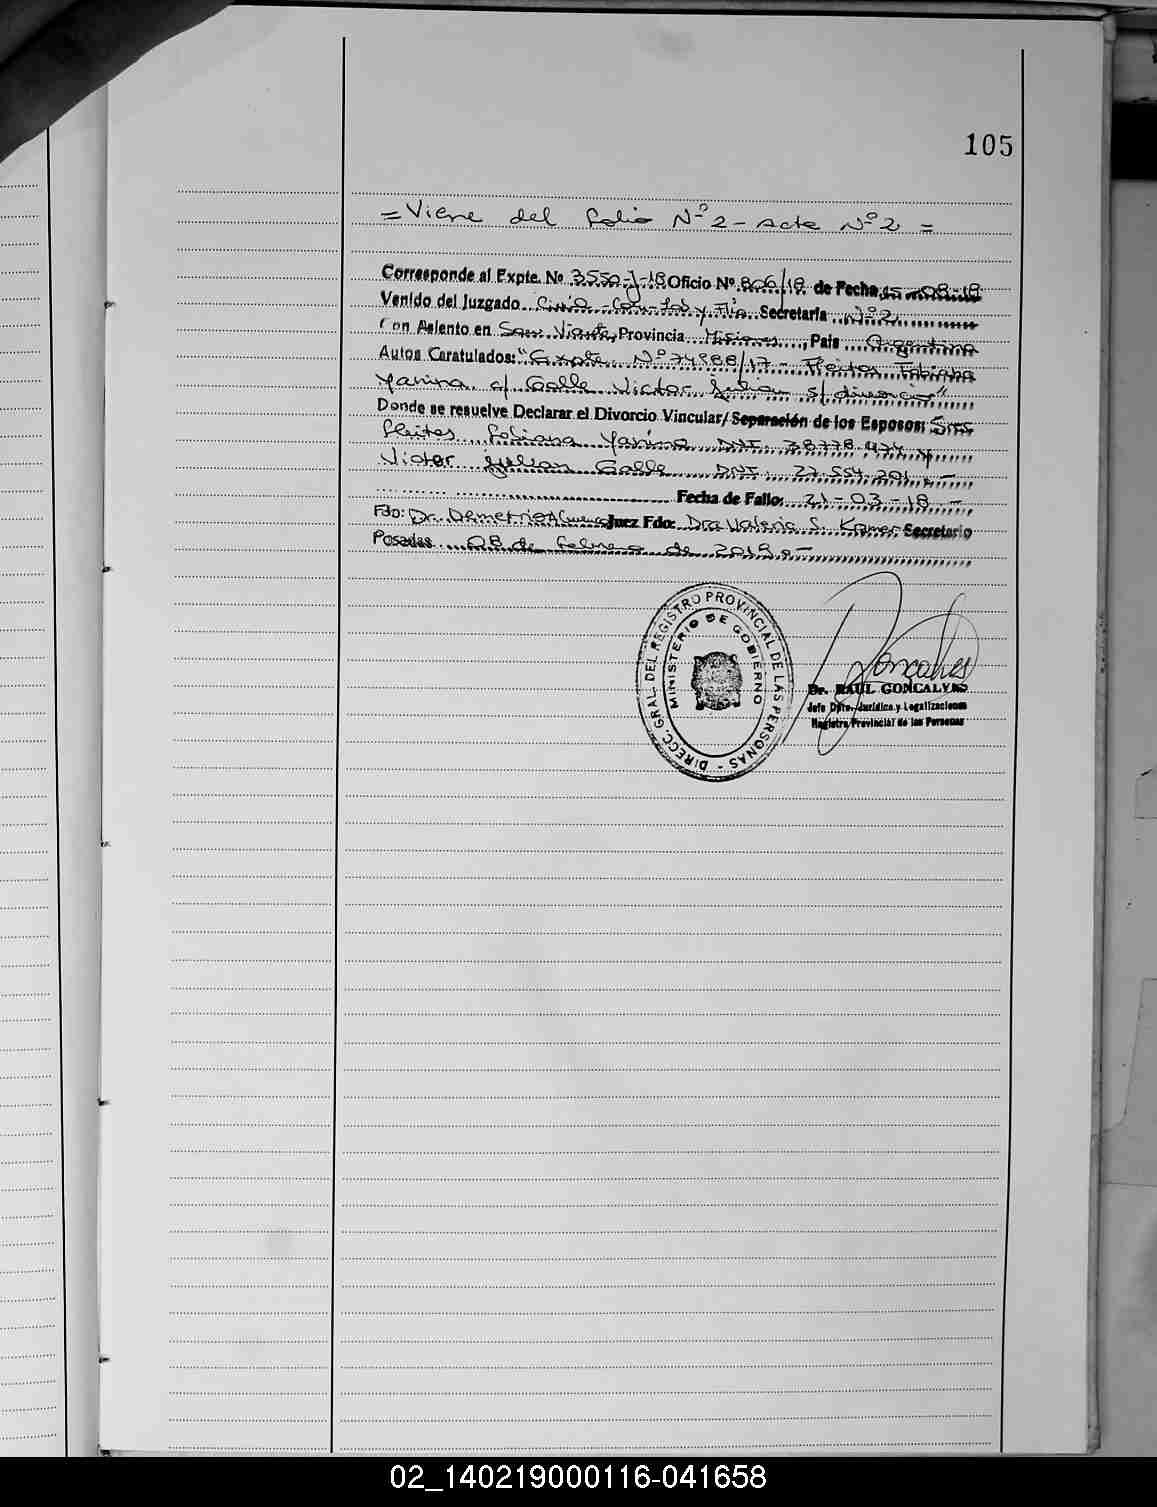 105
= Viene del folio Nº 2 - Acta Nº 2 =
Corresponde al Expte. No 3550-J-18 Oficio Nº 806/18 de Fecha 15-08-18
Venido del Juzgado Civil - Com - Lab y Flia Secretaria Nº 2
Con Asiento en San Vicente, Provincia Misiones, País Argentina
Autos Caratulados: "Expte. Nº 74988/17 - Fleitas Fabiana
Yanina c/ Galle Victor Julian s/ divorcio"
Donde se resuelve Declarar el Divorcio Vincular/Separación de los Esposos: Sres
Fleitas Fabiana Yanina DNI: 38.778.974 y
Victor Julian Galle DNI: 27.554.201. -
Fecha de Fallo: 21-03-18 -
Fdo: Dr. Demetrio Juez Fdo: Dra Valeria S. Kramer Secretario
Posadas 08 de febrero de 2019 -
DIRECC. GRAL. DEL REGISTRO PROVINCIAL DE LAS PERSONAS -
MINISTERIO DE GOBIERNO
Goncalves
Dr. RAUL GONCALVES
Jefe Dpto. Jurídico y Legalizaciones
Registro Provincial de las Personas
02_140219000116-041658